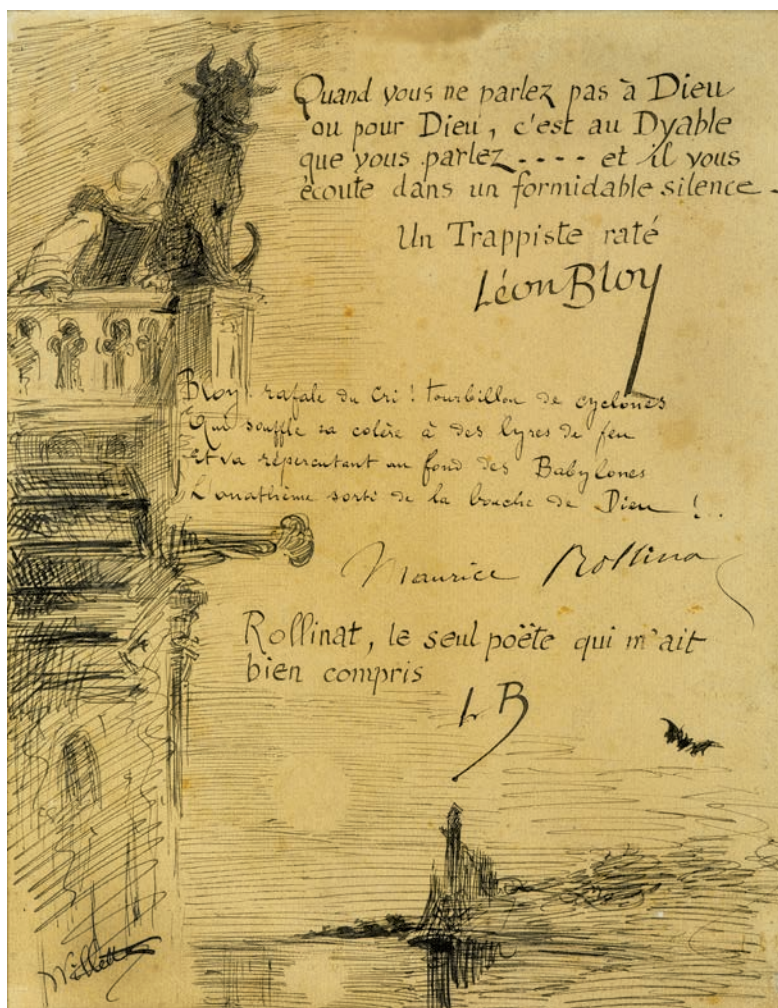 Quand vous ne parlez pas à Dieu
ou pour Dieu, c'est au Dyable
que vous parlez - - - - et il vous
écoute dans un formidable silence -
Un Trappiste raté
Léon Bloy
Bloy rafale du Cri ! tourbillon de cyclones
Qui souffle sa colère à des lyres de feu
Et va répercutant au fond des Babylones
L'anathième sorti de la bouche de Dieu ! . .
Maurice Rollina
Rollinat, le seul poëte qui m'ait
bien compris
L B
Willette